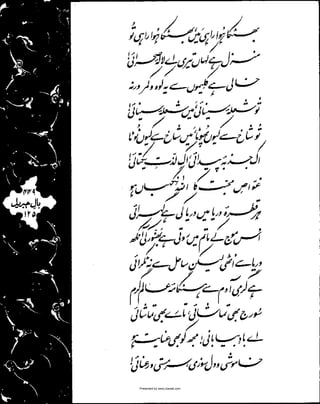 بھٹکا ہوا راہی میں، بھٹکا ہوا راہی تو
منزل ہے کہاں تیری اے لالۂ صحرائی!
خالی ہے کلیموں سے یہ کوہ و کمر ورنہ
تو شعلۂ سینائی، میں شعلۂ سینائی!
تو شاخ سے کیوں پھوٹا، میں شاخ سے کیوں ٹوٹا
اک جذبۂ پیدائی، اک لذت یکتائی!
غواص محبت کا اللہ نگہباں ہو
ہر قطرۂ دریا میں دریا کی ہے گہرائی
اس موج کے ماتم میں روتی ہے بھنور کی آنکھ
دریا سے اٹھی لیکن ساحل سے نہ ٹکرائی
ہے گرمی آدم سے ہنگامۂ عالم گرم
سورج بھی تماشائی، تارے بھی تماشائی
اے باد بیابانی! مجھ کو بھی عنایت ہو
خاموشی و دل سوزی، سرمستی و رعنائی!
۴۴۹
بال جبریل
۱۲۵
Presented by www.ziaraat.com